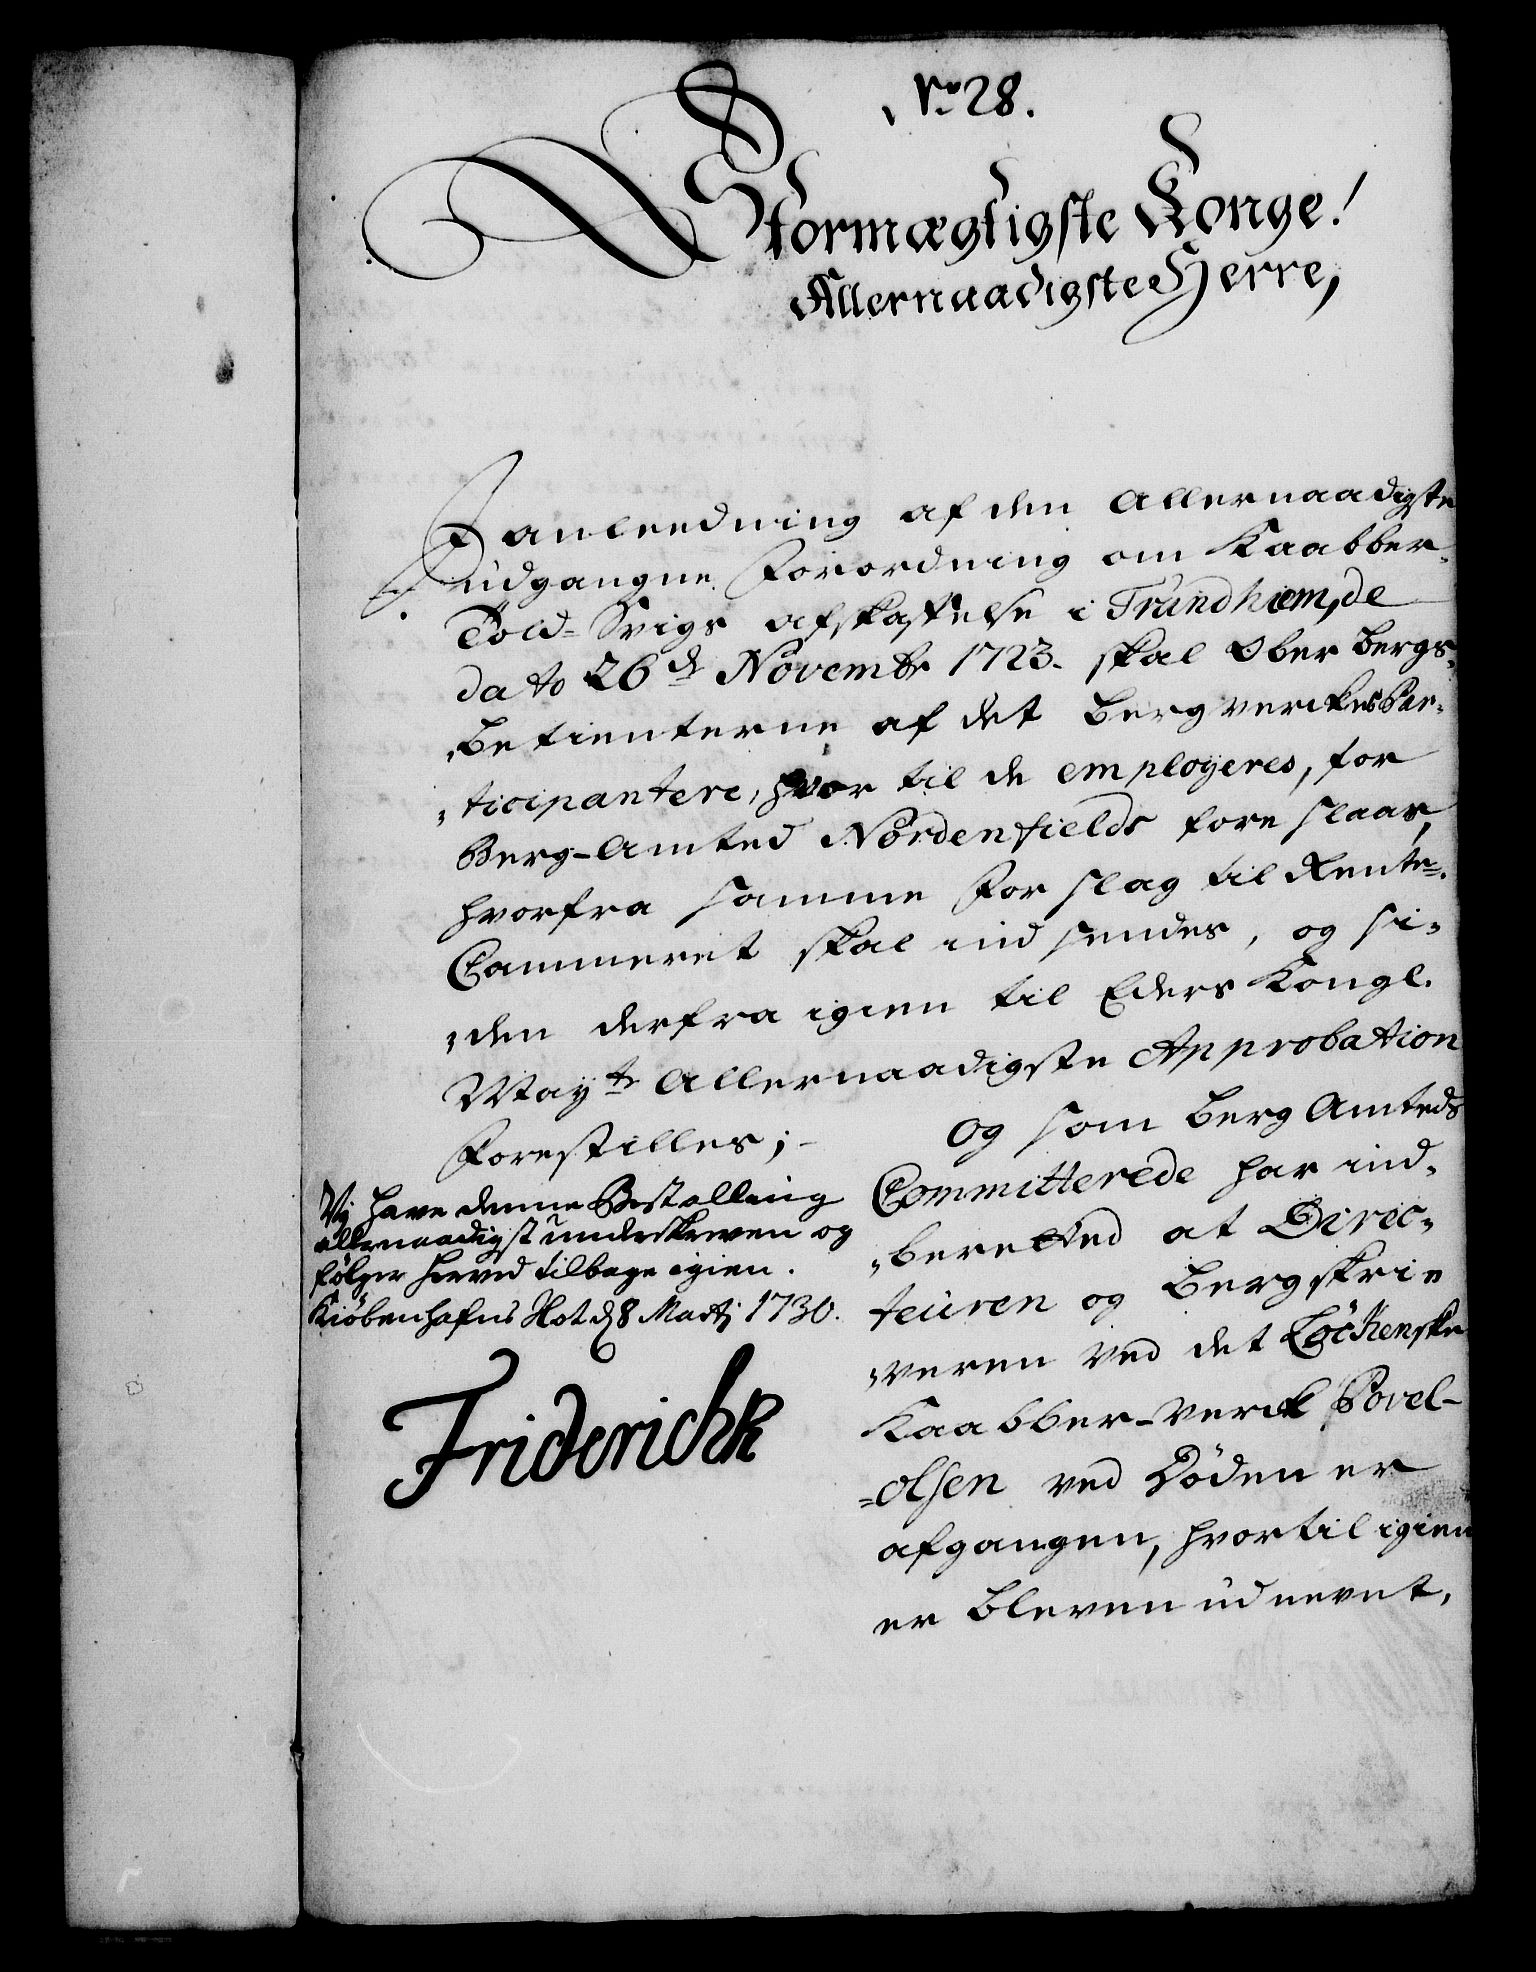 No 28.
Stormægtigste Konge!
Allernaadigste Herre,
I anleedning af den Allernaadigste
udgangne Forordning om Kaabber-
Told-Svigs afskaffelse i Trundhiem, de
dato 26 d. Novembr 1723. skal Ober bergs-
betienterne af det bergverckes Par-
ticipantere, hvor til de employeres, for
Berg-Amted Nordenfields fore slaaes,
hvorfra samme For slag til Rente-
Cammeret skal ind sendes, og si-
den derfra igien til Eders Kongl.
Mayts Allernaadigste Approbation
Forestilles; -
Og som berg Amteds
Committerede har ind-
beretted at Direc-
teuren og bergskri-
veren ved det Løckenske
Kaabber-verck Povel-
olsen ved Døden er
afgangen, hvortil igien
er bleven udnevnt,
Vj have denne Bestalling
allernaadigst underskreven og
følger herved tilbage igien.
Kiøbenhafns Slot d. 8 Martj 1730.
Friderich R